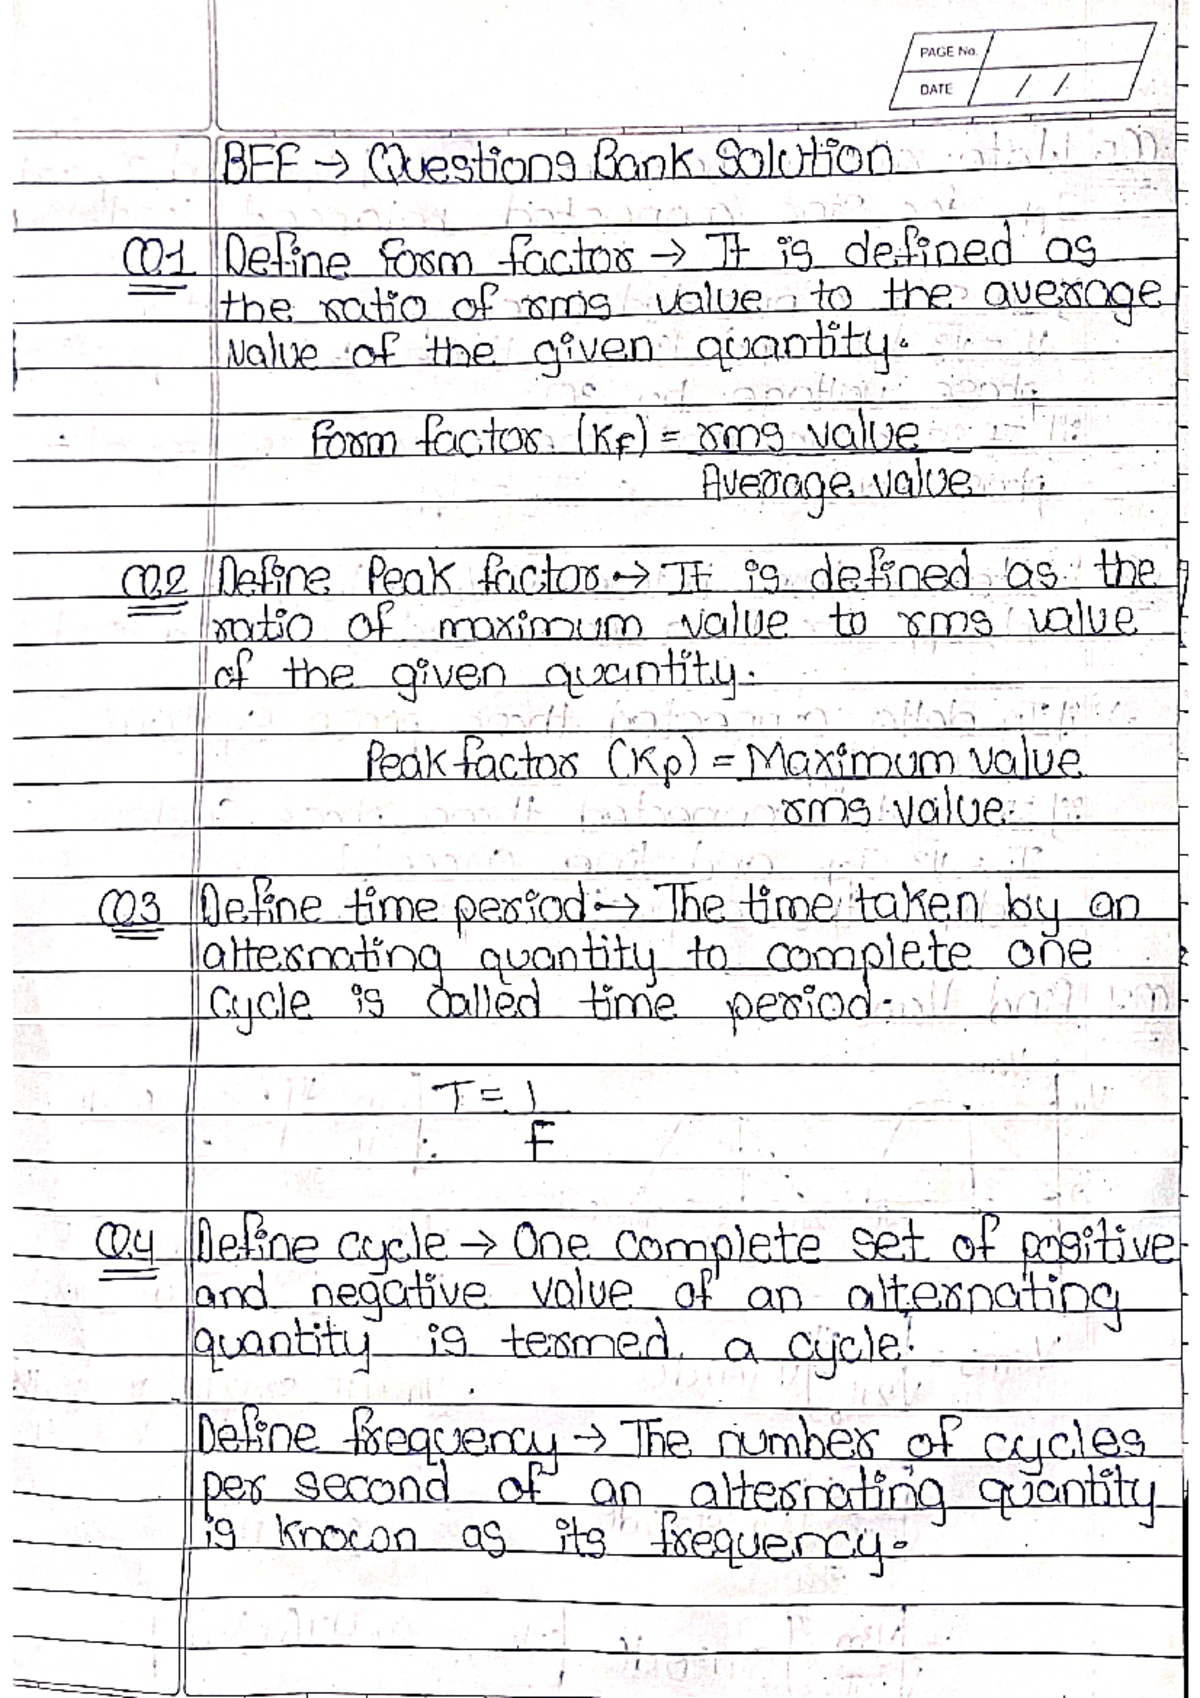 PAGE No.
DATE / /
BEE → Questions Bank Solution
Q.1 Define form factor → It is defined as
the ratio of rms value to the average
value of the given quantity.
Form factor (KF) = rms value
Average value
Q.2 Define Peak factor → It is defined as the
ratio of maximum value to rms value
of the given quantity.
Peak factor (Kp) = Maximum value
rms value
Q.3 Define time period → The time taken by an
alternating quantity to complete one
cycle is called time period.
T = 1
F
Q.4 Define cycle → One complete set of positive
and negative value of an alternating
quantity is termed a cycle.
Define frequency → The number of cycles
per second of an alternating quantity
is known as its frequency.